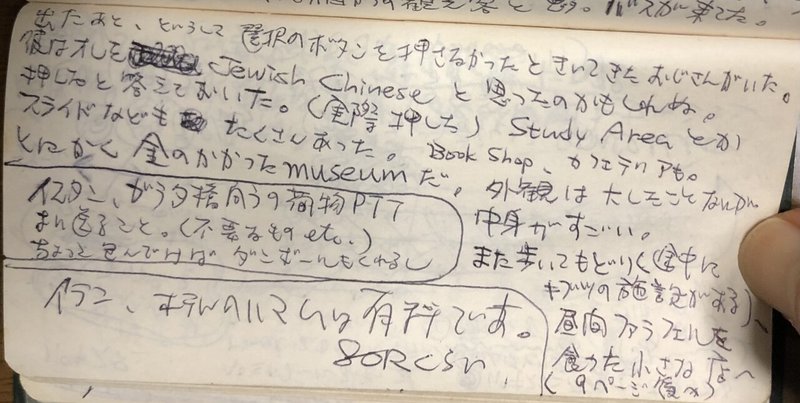 出たあと、どうして選択のボタンを押さなかったときいてきたおじさんがいた。
彼はオレを Jewish Chinese と思ったのかもしれぬ。
押したと答えておいた。(実際押した) Study Area とか
スライドなども たくさんあった。 Book Shop、カフェテリアも。
とにかく 金のかかった museum だ。外観は大したことないが
中身がすごい。
また歩いてもどり(途中に
キブツの施設がある)、
昼間ファラフェルを
食べた小さな店へ
(9ページ後へ)
イスタン、ガラタ橋向うの荷物PTT
まで送ること。(不要なもの etc.)
ちょっと包んでけばダンボールもくれるし
イラン、ホテルのハマムは有料です。
80Rくらい